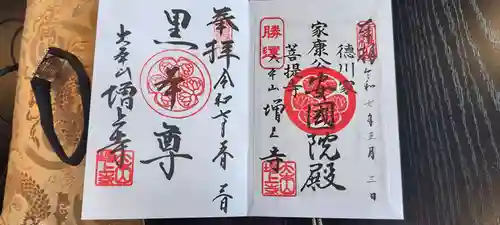 奉拝
令和七年三月三日
徳川家
家康公
安國院殿
菩提寺
勝運
大本山 増上寺
奉拝
令和七年春三月
黒本尊
大本山 増上寺